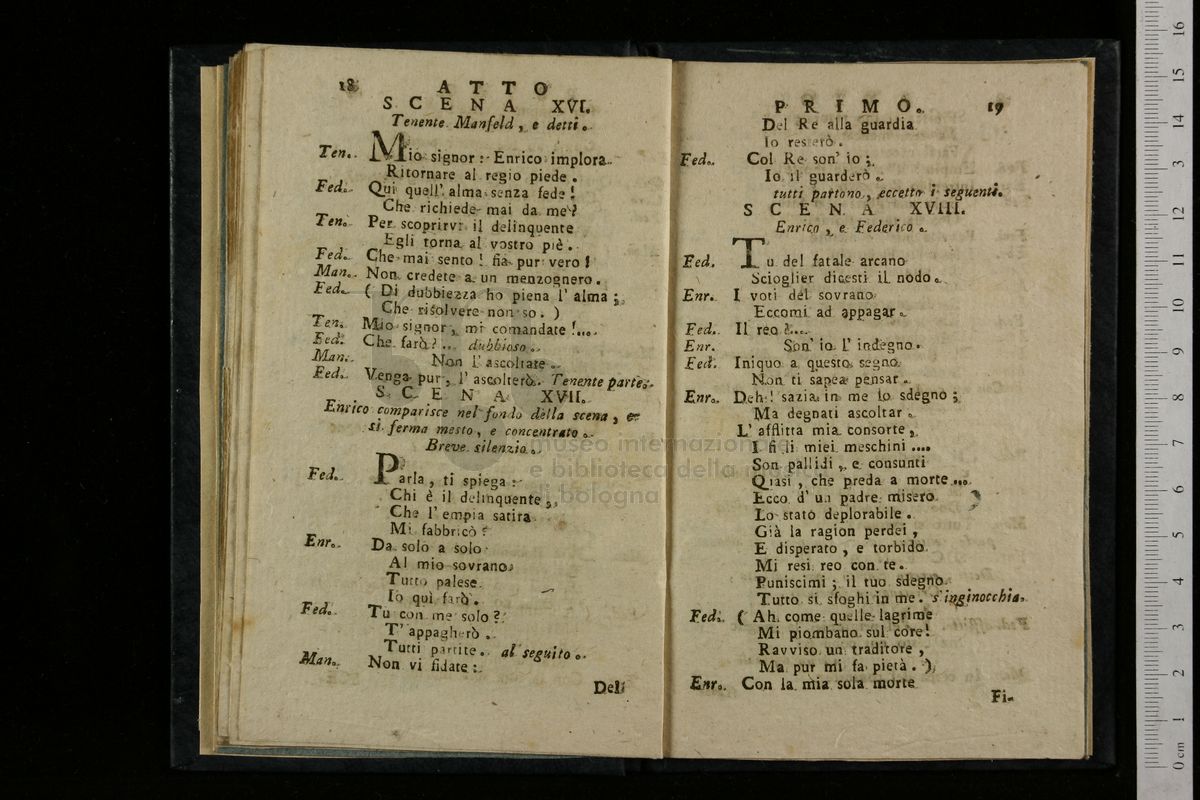 18 ATTO
SCENA XVI.
Tenente Manfeld, e detti.
Ten. Mio signor: Enrico implora
Ritornare al regio piede.
Fed. Qui quell' alma senza fede!
Che richiede mai da me?
Ten. Per scoprirvi il delinquente
Egli torna al vostro piè.
Fed. Che mai sento! fia pur vero!
Man. Non credete a un menzognero.
Fed. (Di dubbiezza ho piena l' alma;
Che risolvere non so.)
Ten. Mio signor, mi comandate!...
Fed. Che farò?... dubbioso.
Man. Non l' ascoltate.
Fed. Venga pur, l' ascolterò. Tenente parte.
SCENA XVII.
Enrico comparisce nel fondo della scena, e
si ferma mesto, e concentrato.
Breve silenzio.
Fed. Parla, ti spiega:
Chi è il delinquente,
Che l' empia satira
Mi fabbricò?
Enr. Da solo a solo
Al mio sovrano
Tutto palese
Io quì farò.
Fed. Tu con me solo?
T' appagherò.
Tutti partite. al seguito.
Man. Non vi fidate:
Del
PRIMO. 19
Del Re alla guardia
Io resterò.
Fed. Col Re son' io;
Io il guarderò.
tutti partono, eccetto i seguenti.
SCENA XVIII.
Enrico, e Federico.
Fed. Tu del fatale arcano
Scioglier dicesti il nodo.
Enr. I voti del sovrano
Eccomi ad appagar.
Fed. Il reo?...
Enr. Son' io l' indegno.
Fed. Iniquo a questo segno
Non ti sapea pensar.
Enr. Deh! sazia in me lo sdegno;
Ma degnati ascoltar.
L' afflitta mia consorte,
I figli miei meschini....
Son pallidi, e consunti
Quasi, che preda a morte...
Ecco d' un padre misero
Lo stato deplorabile.
Già la ragion perdei,
E disperato, e torbido
Mi resi reo con te.
Puniscimi; il tuo sdegno
Tutto si sfoghi in me. s'inginocchia.
Fed. (Ah come quelle lagrime
Mi piombano sul core!
Ravviso un traditore,
Ma pur mi fa pietà.)
Enr. Con la mia sola morte
Fi-
museo internazionale
e biblioteca della musica
di bologna
0 cm 1 2 3 4 5 6 7 8 9 10 11 12 13 14 15 16